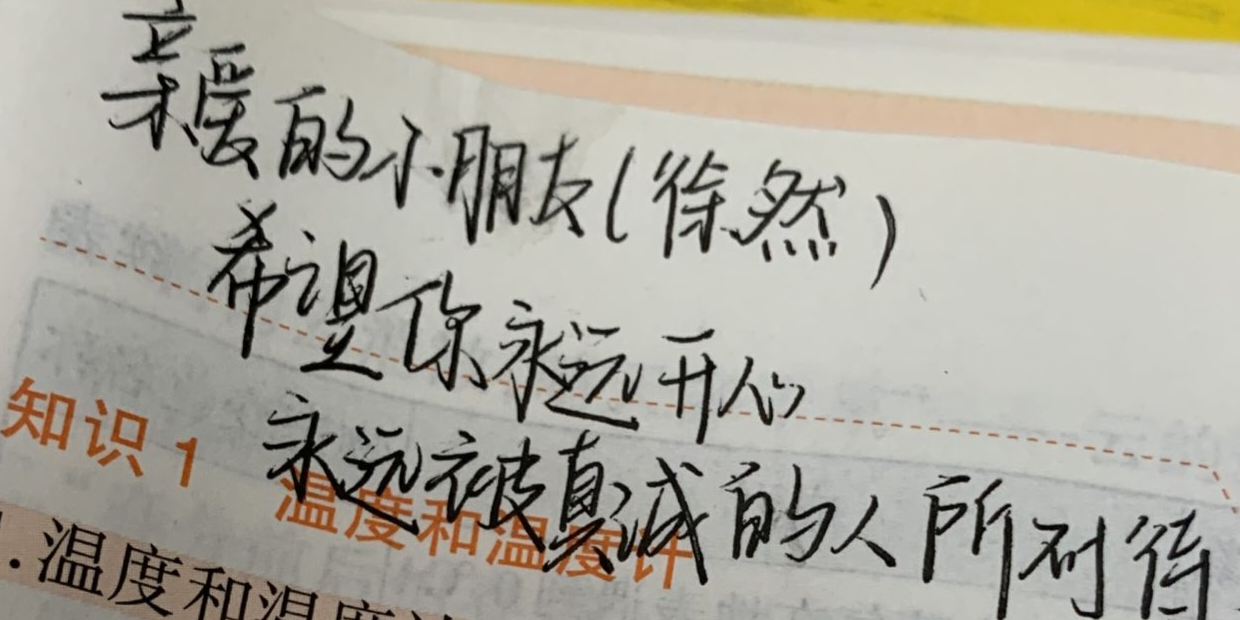 亲爱的小朋友(徐然)
希望你永远开心
永远被真诚的人所对待
知识1 温度和温度计
1.温度和温度计